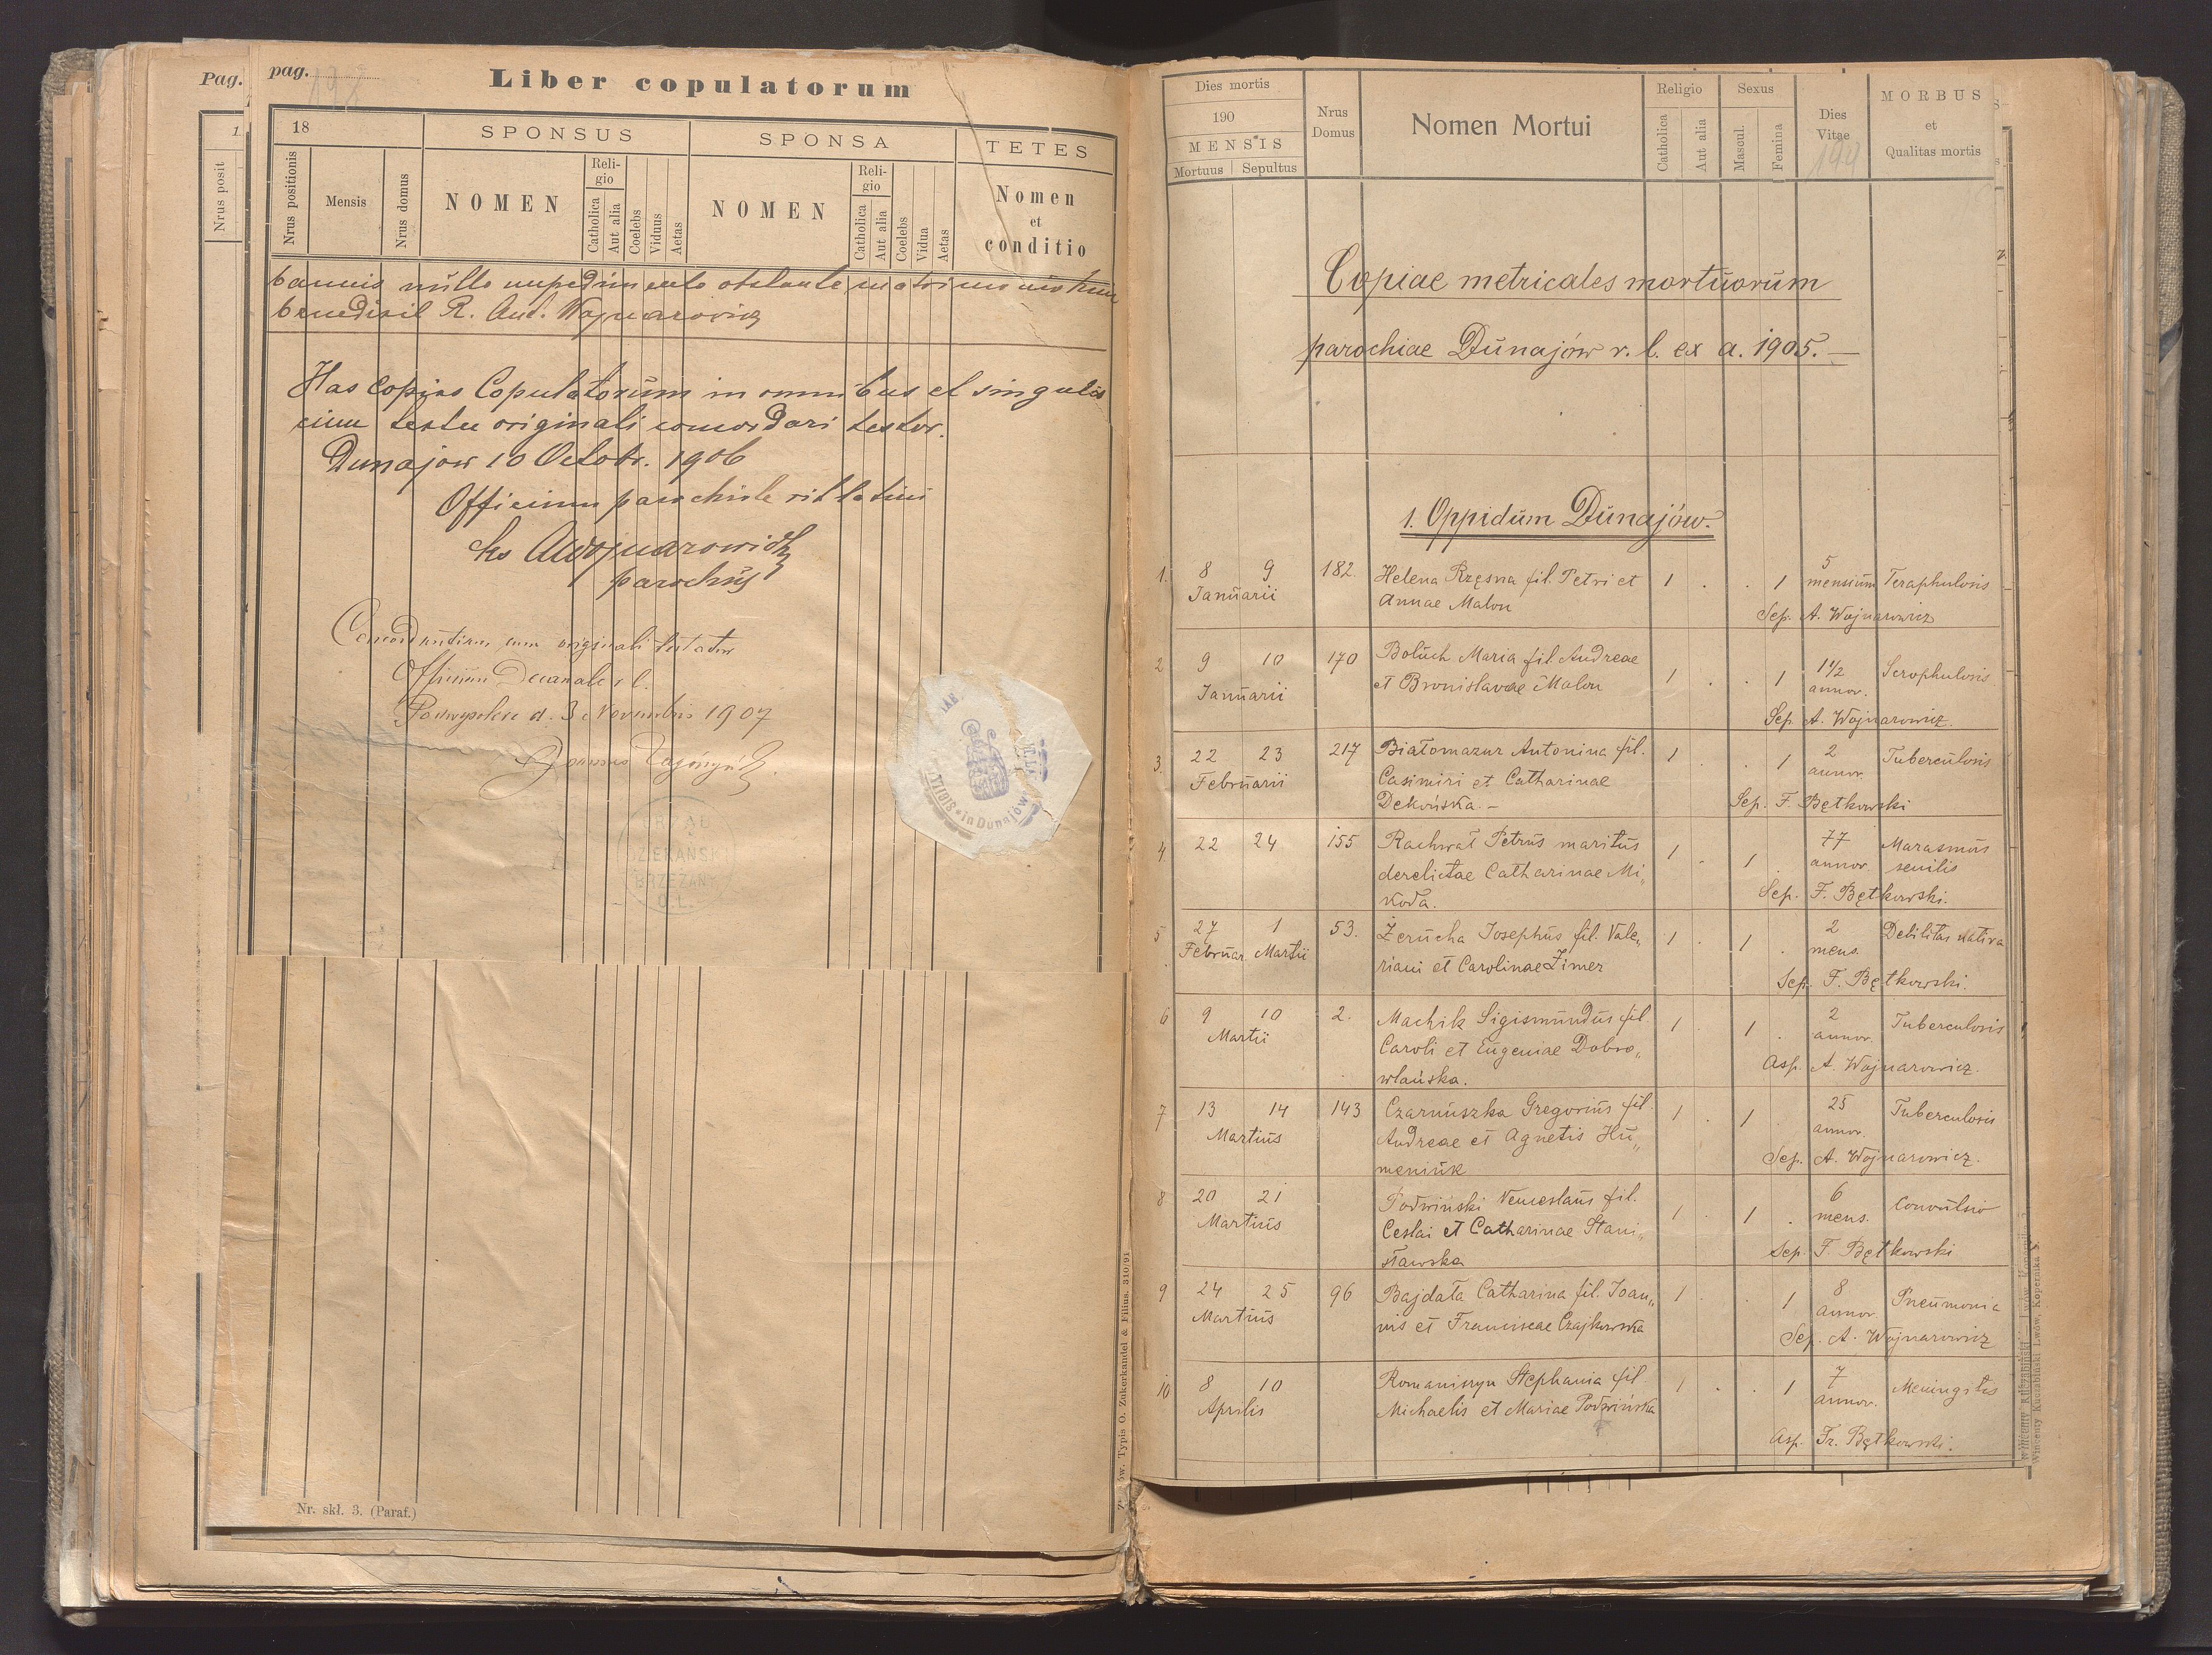 Pag.
1
Nrus posit
pag.
Liber copulatorum
18
SPONSUS
SPONSA
TETES
Nrus positionis
Mensis
Nrus domus
NOMEN
Reli-
gio
Catholica
Aut alia
Coelebs
Viduus
Aetas
NOMEN
Reli-
gio
Catholica
Aut alia
Coelebs
Vidua
Aetas
Nomen
et
conditio
bannis nullo impedimento obstante matrimonium
benedixit R. Ant. Wojnarowicz
Has copias Copulatorum in omnibus et singulis
cum textu originali concordari testor.
Dunajow 10 Octobr. 1906
Officium parochiale rit latini
ks AWojnarowicz
parochus
Concordantiam cum originali testatur
Officium Decanale r. l.
d. 3 Novembris 1907
in Dunajów
URZĄD
DZIEKAŃSKI
BRZEŻANY
O.L.
Nr. skł. 3. (Paraf.)
Typis O. Zukerkandel & Filius. 310/91
Dies mortis
190
MENSIS
Mortuus Sepultus
Nrus
Domus
Nomen Mortui
Religio
Catholica
Aut alia
Sexus
Mascul.
Femina
Dies
Vitae
144
MORBUS
et
Qualitas mortis
Copiae metricales mortuorum
parochiae Dunajów r. l. ex a. 1905.—
1. Oppidum Dunajów.
1. 8 9 182. Helena Rzęsna fil. Petri et 1 . . 1 5
Januarii Annae Malon mensium
Sep. A. Wojnarowicz
2 9 10 170 Boluch Maria fil Andreae 1 . . 1 1 1/2 Scrophulosis
Januarii et Bronislavae Malon annor.
Sep. A. Wojnarowicz.
3. 22 23 217 Białomazur Antonina fil. 1 . . 1 2 Tuberculosis
Februarii Casimiri et Catharinae annor.
Dekońska.- Sep. F. Bętkowski
4 22 24 155 Rachwał Petrus maritus 1 . 1 . 77 Marasmus
derelictae Catharinae Mi„ annor. senilis
koda. Sep. F. Bętkowski.
5 27 1 53. Żerucha Josephus fil. Vale„ 1 . 1 . 2 Debilitas nativa
Februar. Martii riani et Carolinae Zimer mens.
Sep. F. Bętkowski.
6 9 10 2. Machik Sigismundus fil. 1 . 1 . 2 Tuberculosis
Martii Caroli et Eugeniae Dobro„ annor.
wlańska. Asp. A. Wojnarowicz.
7 13 14 143 Czarnuszka Gregorius fil. 1 . 1 . 25 Tuberculosis
Martius Andreae et Agnetis Hu„ annor.
meniuk Sep. A. Wojnarowicz.
8 20 21 Podwiński Venceslaus fil. 1 . 1 . 6 Convulsio
Martius Ceslai et Catharinae Stani„ mens.
sławska Sep. F. Bętkowski
9 24 25 96 Bajdała Catharina fil. Joan„ 1 . . 1 8 Pneumonia
Martius nis et Franciscae Czajkowska annor
Sep. A. Wojnarowicz
10 8 10 Romaniszyn Stephania fil 1 . . 1 7 Meningitis
Aprilis Michaelis et Mariae Podwińska annor.
Asp. Fr. Bętkowski.
Wincenty Kuczabiński Lwów, Kopernika